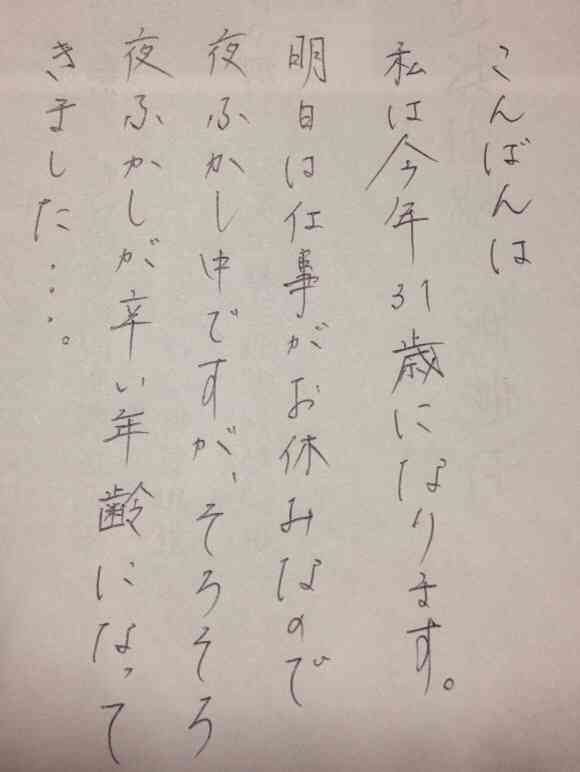 こんばんは
私は今年31歳になります。
明日は仕事がお休みなので
夜ふかし中ですが、そろそろ
夜ふかしが辛い年齢になって
きました・・・。